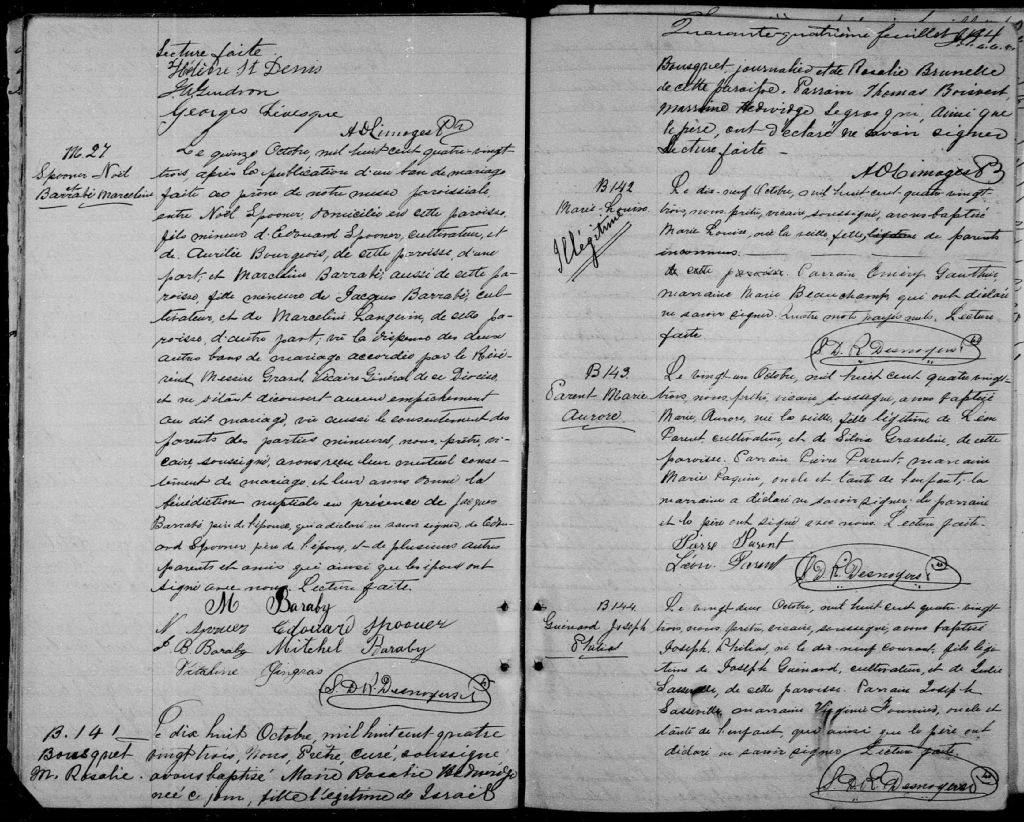 Lecture faite.
Hélène St Denis
Georges Lévesque
A D Limoges Ptr
M. 27
Spooner Noël
et
Barrabé Marceline
Le quinze Octobre, mil huit cent quatre-vingt
trois, après la publication d'un ban de mariage
faite au prône de notre messe paroissiale
entre Noël Spooner, domicilié en cette paroisse,
fils mineur d'Edouard Spooner, cultivateur, et
de Aurélie Bourgeois, de cette paroisse, d'une
part, et Marceline Barrabé, aussi de cette pa-
roisse, fille mineure de Jacques Barrabé, cul-
tivateur, et de Marceline Languin, de cette pa-
roisse, d'autre part; vu la dispense des deux
autres bans de mariage accordés par le Révé-
rend Messire Grand Vicaire Général de ce Diocèse,
et ne s'étant découvert aucun empêchement
au dit mariage, vu aussi le consentement des
parents des parties mineures, nous, prêtre, vi-
caire, soussigné, avons reçu leur mutuel conse-
tement de mariage et leur avons donné la
bénédiction nuptiale en présence de Jacques
Barrabé père de l'épouse, qui a déclaré ne savoir signer, de Edou-
ard Spooner père de l'époux, et de plusieurs autres
parents et amis qui ainsi que les époux ont
signé avec nous. Lecture faite.
M Baraby
N Spouer Edouard Spouer
J B Baraby Mitchel Baraby
Vitaline Gingras
S. D. R. Desnoyers
B. 141
Bousquet
M. Rosalie.
Le dix huit Octobre, mil huit cent quatre
vingt trois, Nous, Prêtre, curé soussigné
avons baptisé Marie Rosalie Hedwidge
née ce jour, fille légitime de Israël
Quarante-quatrième feuillet
Bousquet, journalier et de Rosalie Brunelle
de cette paroisse. Parrain Thomas Boisvert
Marraine Hedwidge Legros qui, ainsi que
le père, ont déclaré ne savoir signer
Lecture faite
A D Limoges P
B 142
Marie-Louise
Illégitime
Le dix-neuf Octobre, mil huit-cent-quatre-vingt-
trois, nous, prêtre, vicaire, soussigné, avons baptisé
Marie Louise, née la veille, fille, légitime de parents
inconnus.
de cette paroisse. Parrain Emery Gauthier
marraine Marie Beauchamp, qui ont déclaré
ne savoir signer. Quatre mots rayés nuls. Lecture
faite.
S. D. R. Desnoyers
B 143.
Parent Marie
Aurore.
Le vingt un Octobre, mil huit cent quatre vingt-
trois, nous, prêtre, vicaire, soussigné, avons baptisé
Marie, Aurore, née la veille, fille légitime de Léon
Parent cultivateur, et de Silvia Graseline, de cette
paroisse. Parrain Pierre Parent, marraine
Marie Paquin, oncle et tante de l'enfant; la
marraine a déclaré ne savoir signer. le parrain
et le père ont signé avec nous. Lecture faite.
Pierre Parent
Léon Parent
S. D. R. Desnoyers
B 144.
Guénard Joseph
Philias
Le vingt deux Octobre, mil huit cent quatre-vingt
trois, nous, prêtre, vicaire, soussigné, avons baptisé
Joseph, Philias, né le dix-neuf courant, fils légi-
time de Joseph Guénard, cultivateur, et de Julie
Lasseville, de cette paroisse. Parrain Joseph
Lasseville, marraine Virginie Fournier, oncle et
tante de l'enfant, qui ainsi que le père ont
déclaré ne savoir signer. Lecture faite.
S. D. R. Desnoyers